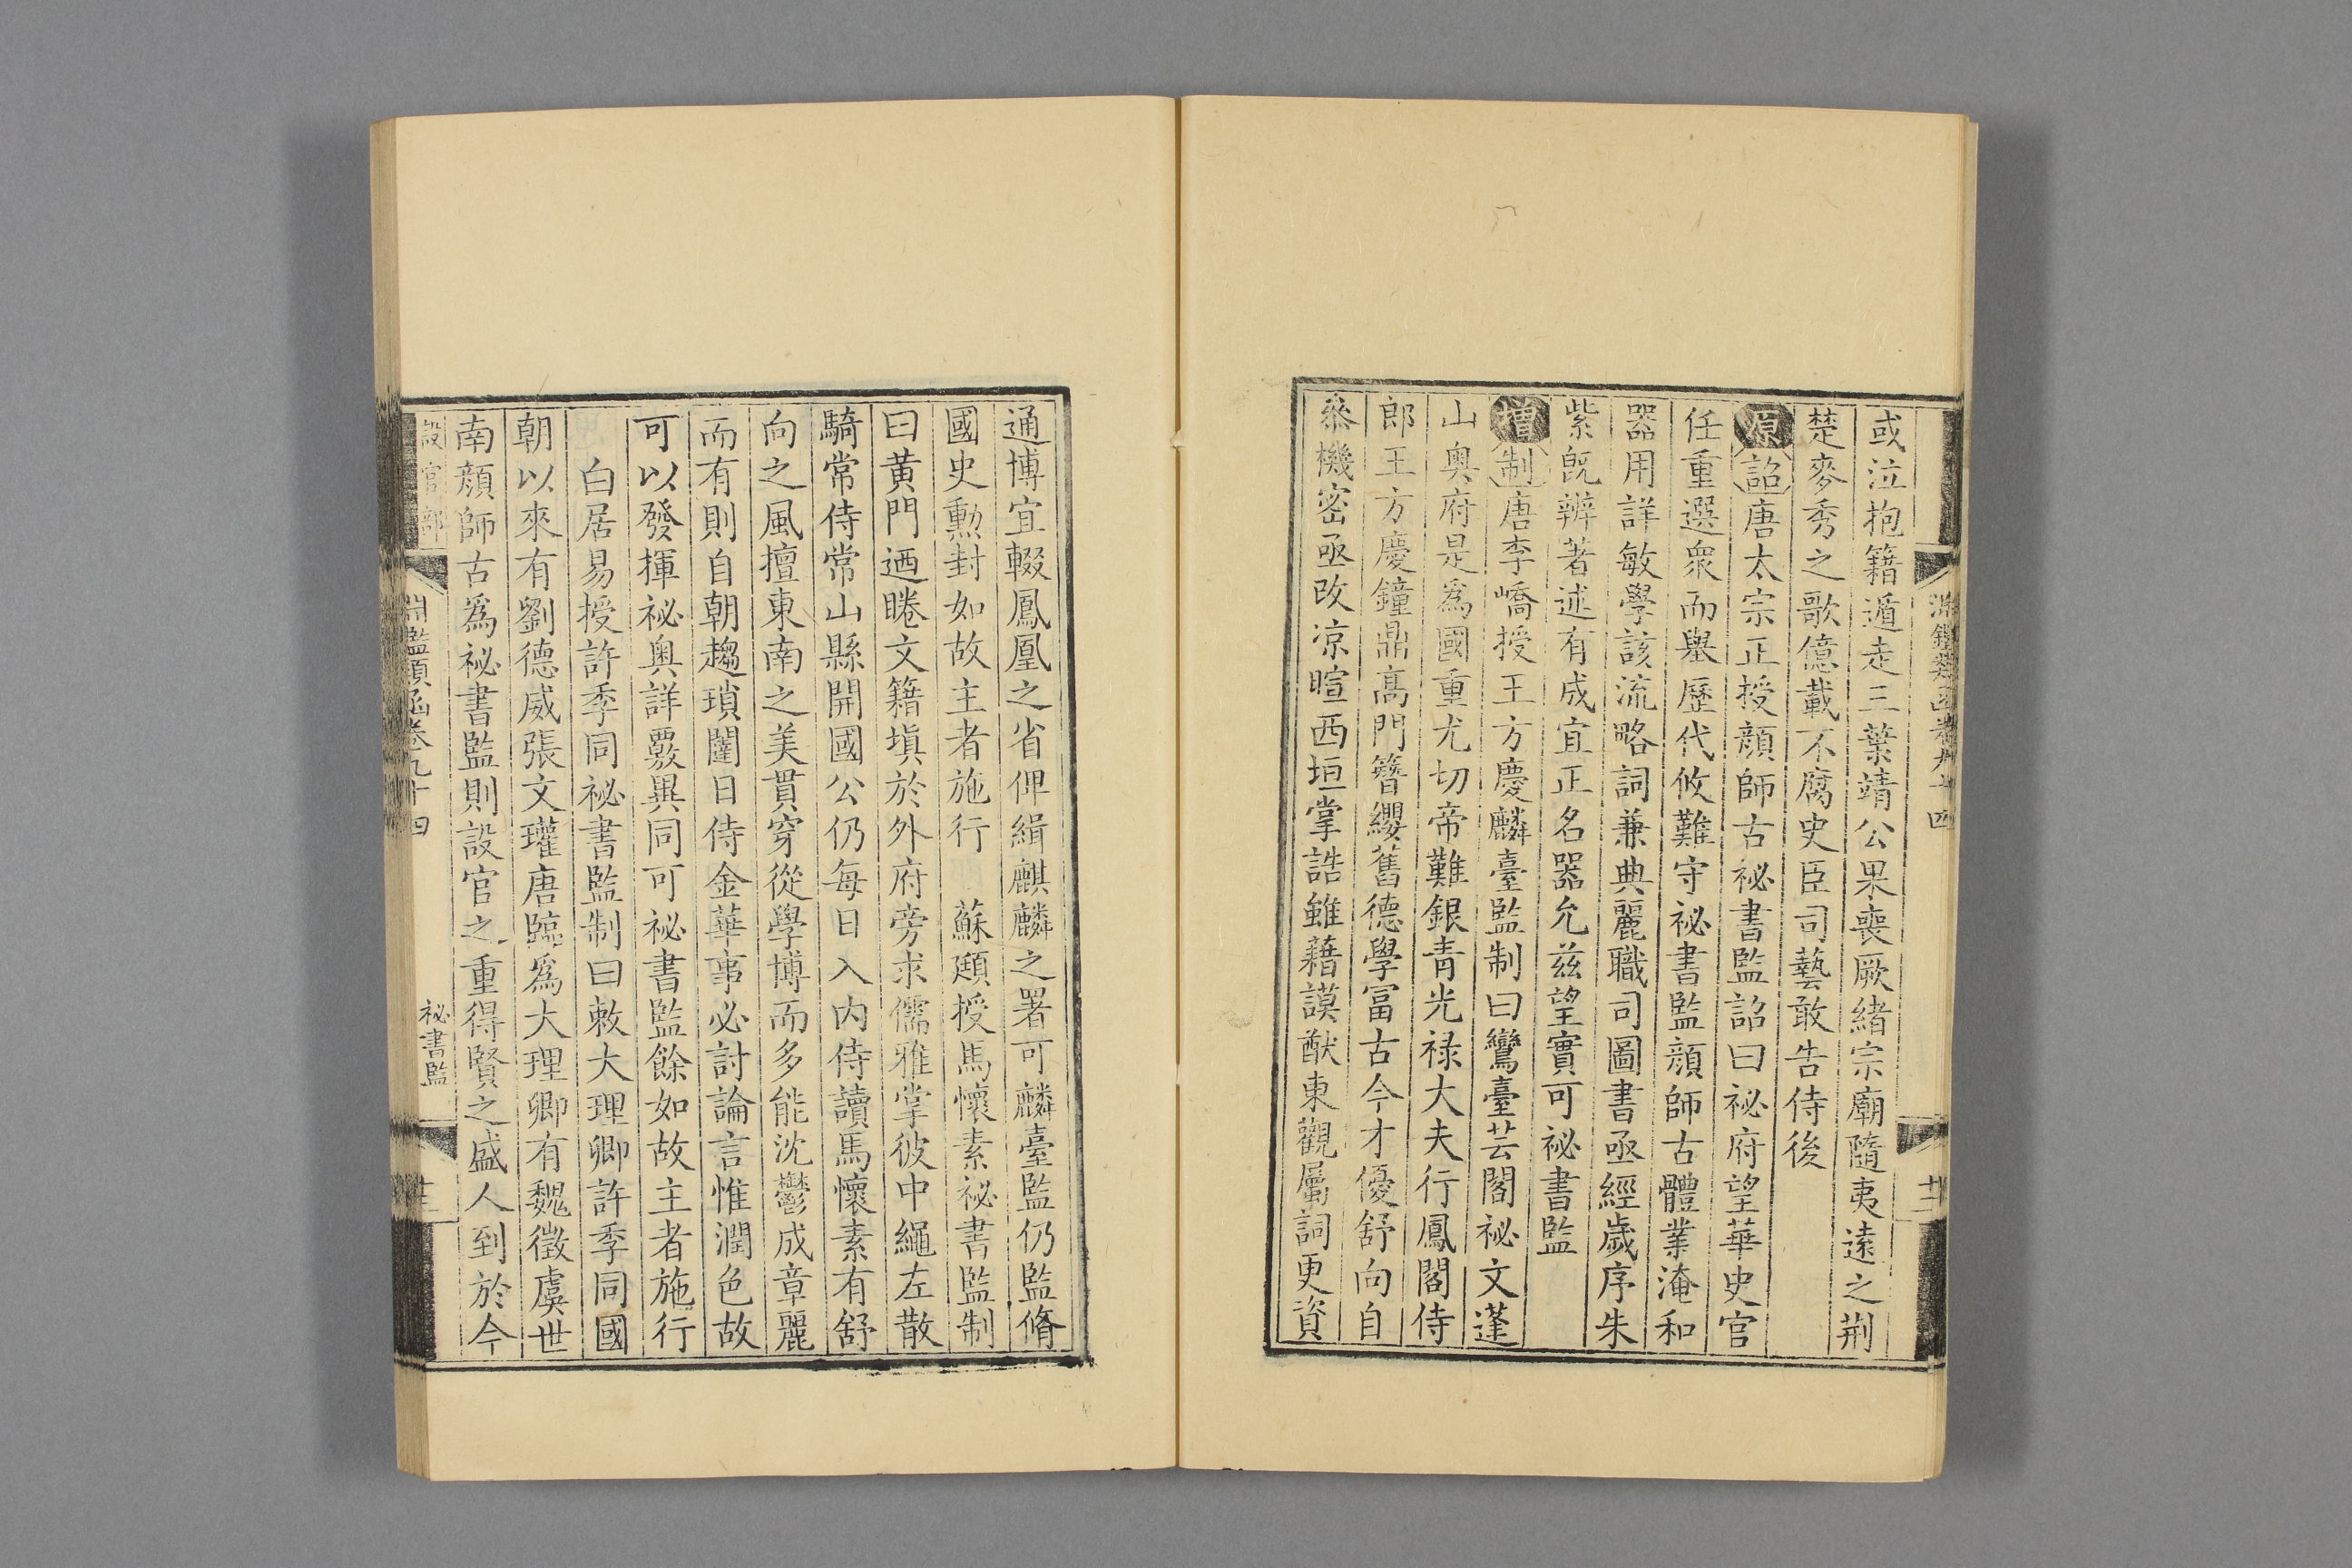 淵鑑類函卷九十四
十二
或泣抱籍遁走三葉靖公果喪厥緒宗廟隨夷遠之荆
楚麥秀之歌億載不腐史臣司藝敢告侍後
原詔唐太宗正授顔師古祕書監詔曰祕府望華史官
任重選衆而舉歷代攸難守祕書監顔師古體業淹和
器用詳敏學該流略詞兼典麗職司圖書亟經歲序朱
紫旣辨著述有成宜正名器允兹望實可祕書監
增制唐李嶠授王方慶麟臺監制曰鸞臺芸閣祕文蓬
山奥府是爲國重尤切帝難銀青光禄大夫行鳳閣侍
郎王方慶鐘鼎高門簪纓舊德學冨古今才優舒向自
叅機密亟改凉暄西垣掌誥雖藉謨猷東觀屬詞更資
通博宜輟鳳凰之省俾緝麒麟之署可麟臺監仍監脩
國史勲封如故主者施行 蘇頲授馬懷素祕書監制
曰黄門迺睠文籍塡於外府旁求儒雅掌彼中繩左散
騎常侍常山縣開國公仍每日入内侍讀馬懷素有舒
向之風擅東南之美貫穿從學博而多能沈鬱成章麗
而有則自朝趨瑣闥日侍金華事必討論言惟潤色故
可以發揮祕奥詳覈異同可祕書監餘如故主者施行
白居易授許季同祕書監制曰敕大理卿許季同國
朝以來有劉德威張文瓘唐臨爲大理卿有魏徵虞世
南顔師古爲祕書監則設官之重得賢之盛人到於今
設官部
淵鑑類函卷九十四
祕書監
十三